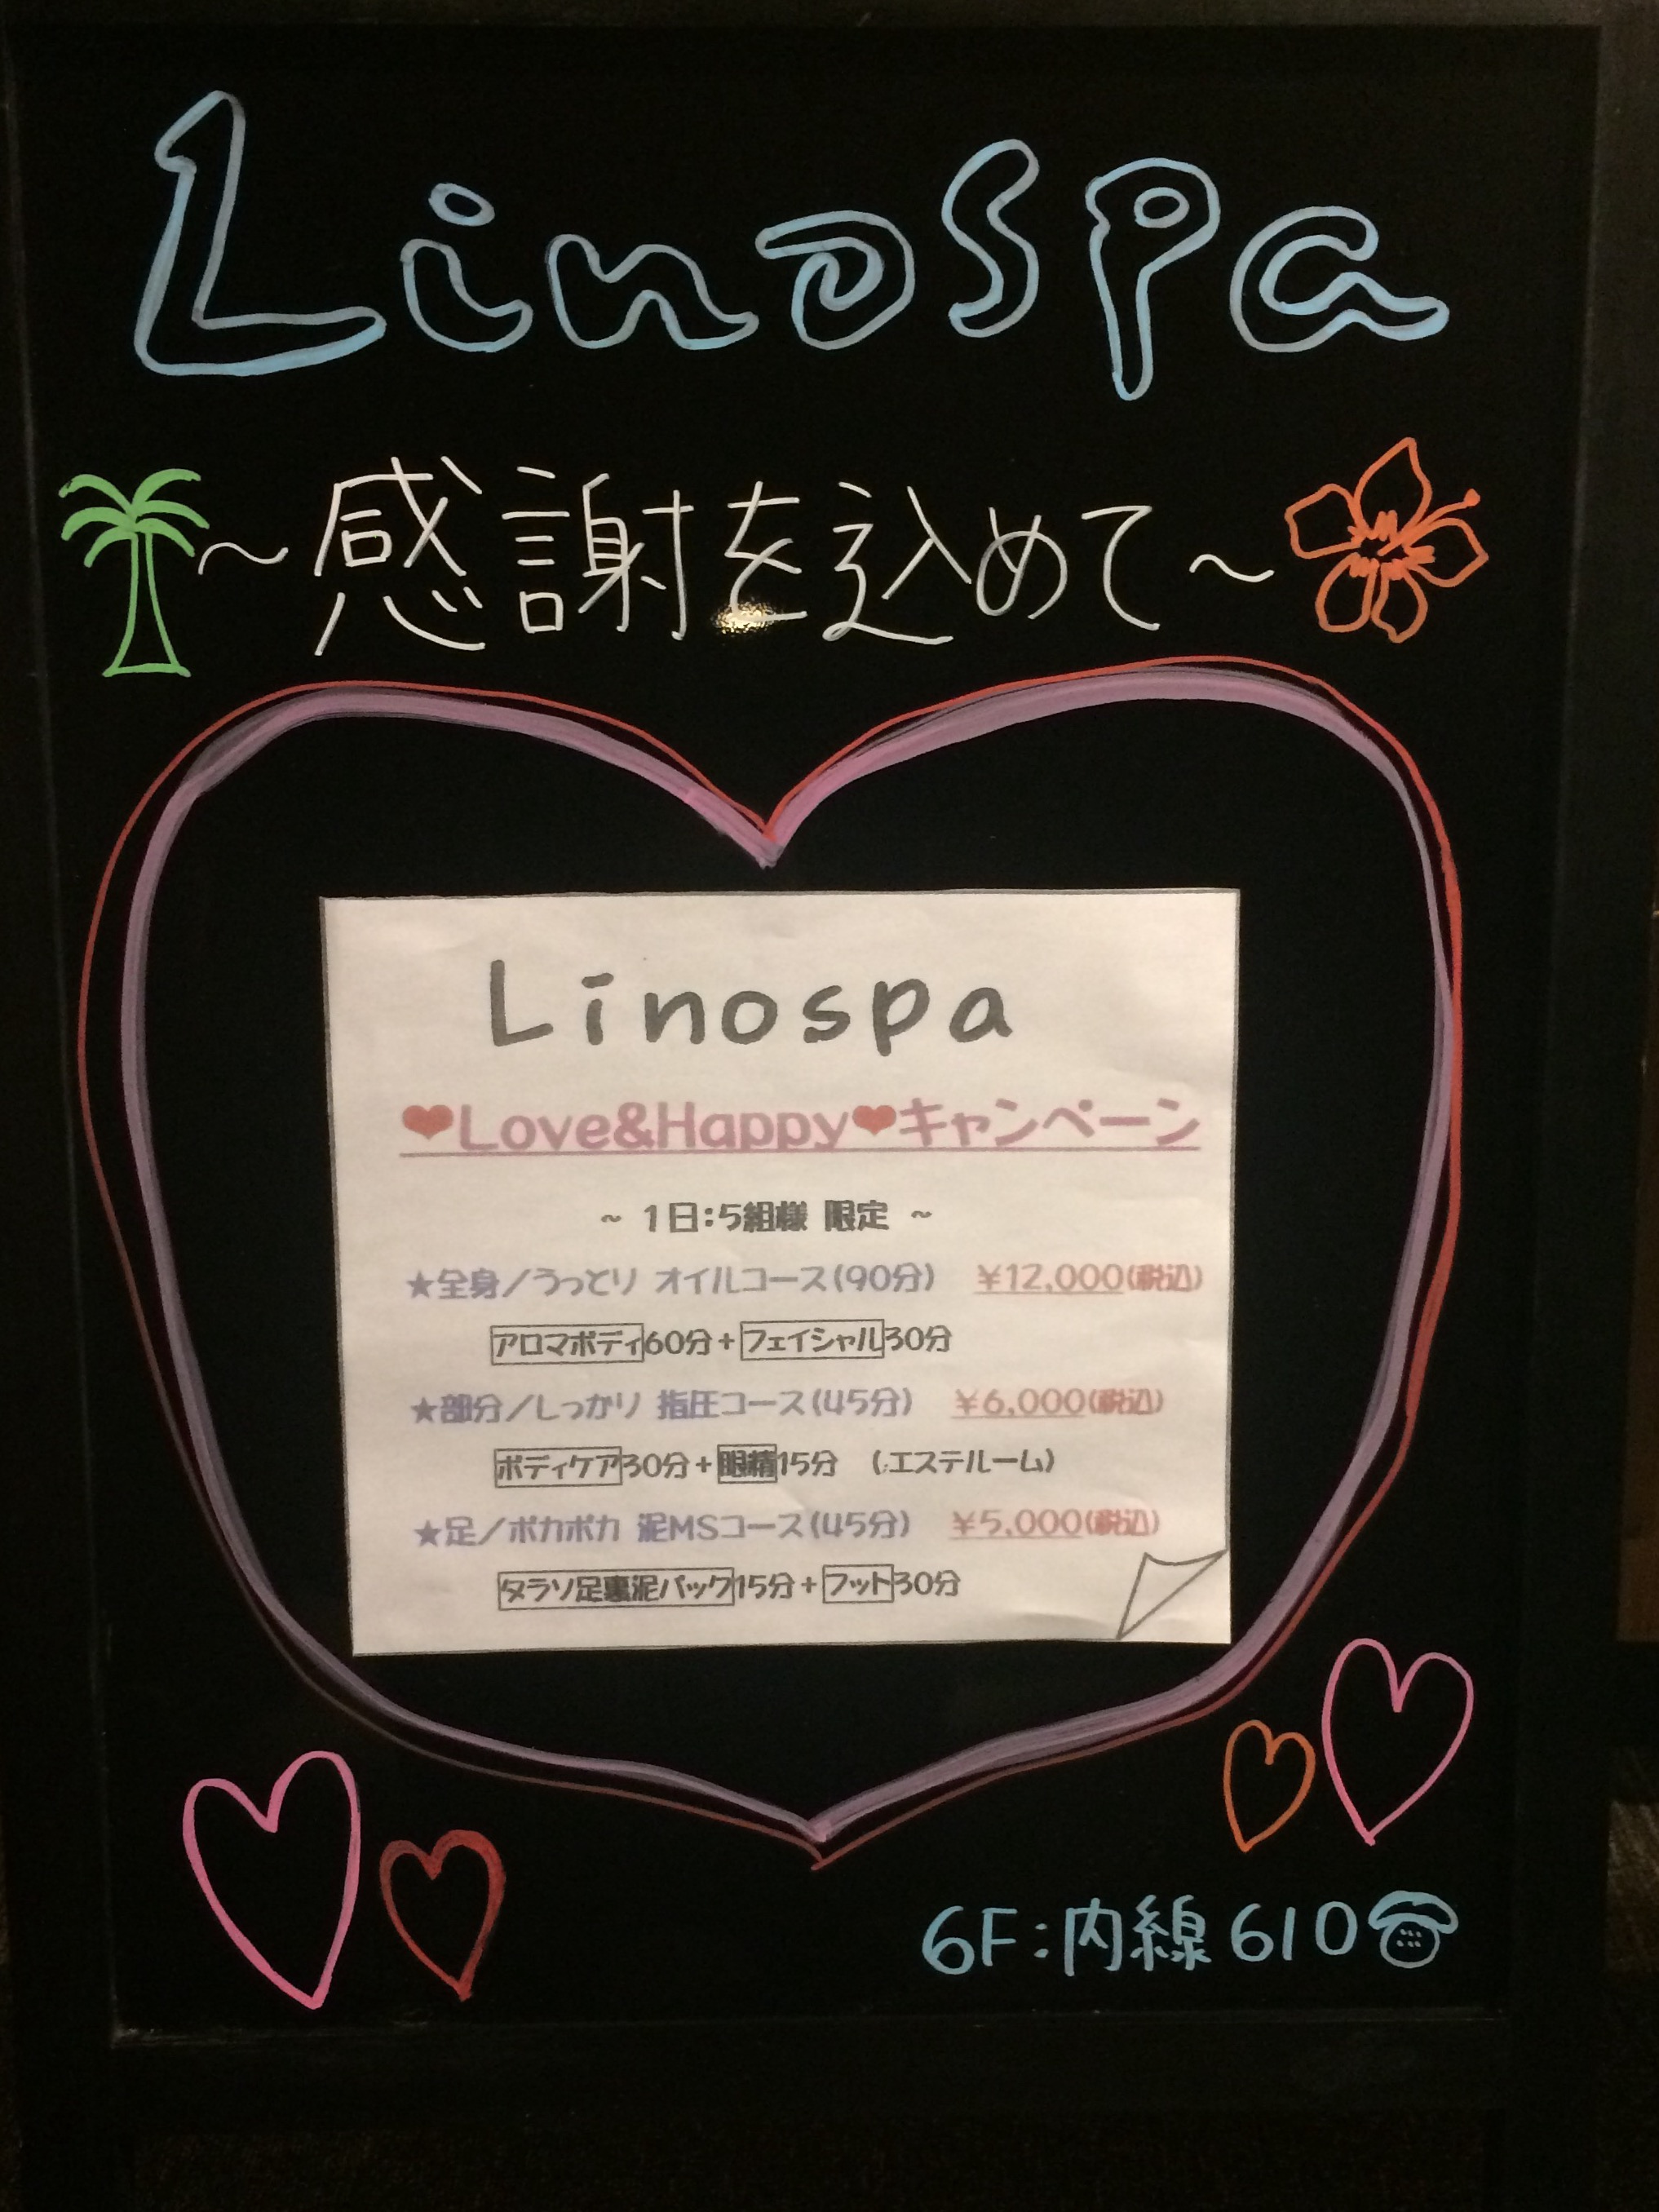 Linospa
～感謝を込めて～
Linospa
❤Love&Happy❤キャンペーン
～ 1日：5組様 限定 ～
★全身／うっとり オイルコース（90分） ￥12,000（税込）
アロマボディ60分＋フェイシャル30分
★部分／しっかり 指圧コース（45分） ￥6,000（税込）
ボディケア30分＋眼精15分 （エステルーム）
★足／ポカポカ 泥MSコース（45分） ￥5,000（税込）
タラソ足裏泥パック15分＋フット30分
6F：内線610